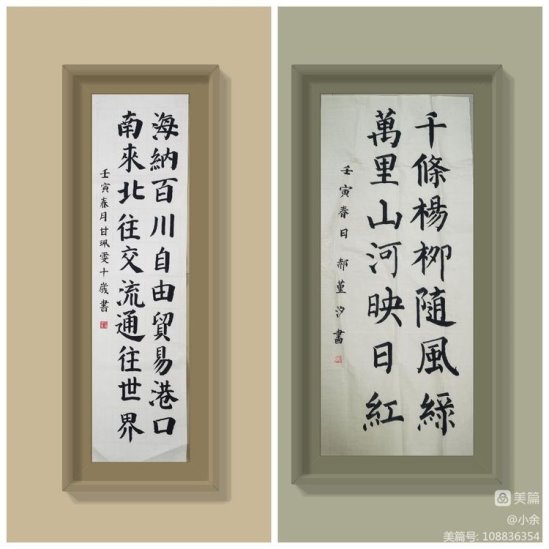 海納百川自由貿易港口
南來北往交流通往世界
壬寅春月甘珮雯十歲書
千條楊柳隨風綠
萬里山河映日紅
壬寅春日郝堇汐書
美篇
@小余
美篇号: 108836354